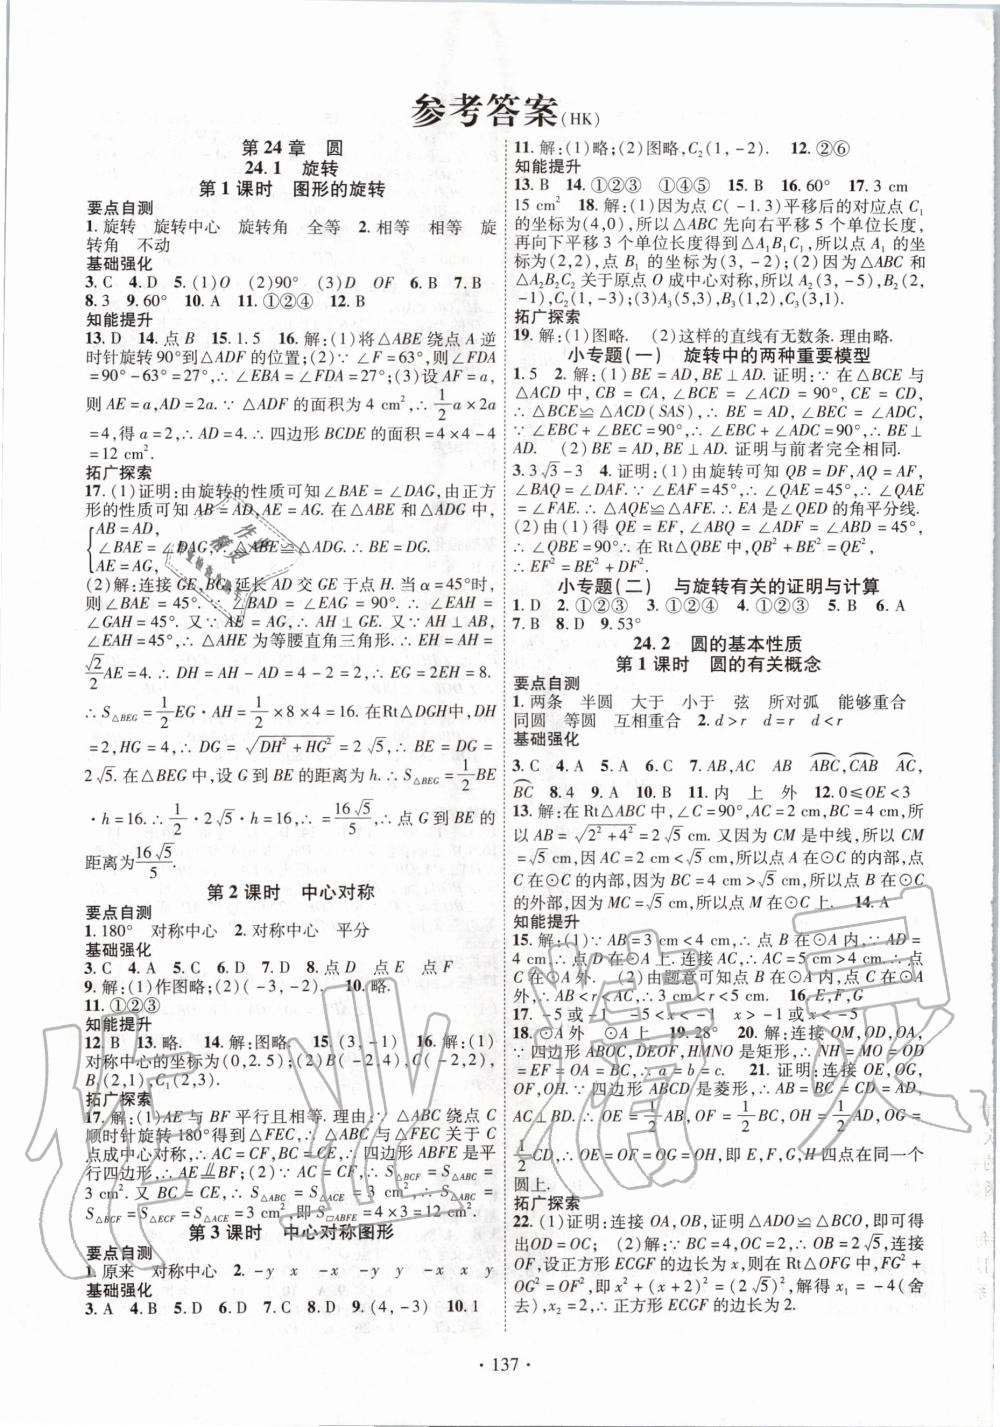 参考答案(HK)
第24章 圆
24.1 旋转
第1课时 图形的旋转
要点自测
1. 旋转 旋转中心 旋转角 全等 2. 相等 相等 旋
转角 不动
基础强化
3. C 4. D 5. (1)O (2)90° (3)D OF 6. B 7. B
8. 3 9. 60° 10. A 11. ①②④ 12. B
知能提升
13. D 14. 点B 15. 1.5 16. 解:(1)将△ABE绕点A逆
时针旋转90°到△ADF的位置;(2)∵∠F=63°,则∠FDA
=90°-63°=27°,∴∠EBA=∠FDA=27°;(3)设AF=a,
则AE=a,AD=2a.∵△ADF的面积为4 cm²,∴1/2a×2a
=4,得a=2,∴AD=4.∴四边形BCDE的面积=4×4-4
=12 cm².
拓广探索
17. (1)证明:由旋转的性质可知∠BAE=∠DAG,由正方
形的性质可知AB=AD,AE=AG.在△ABE和△ADG中,
{AB=AD,
∠BAE=∠DAG,∴△ABE≌△ADG.∴BE=DG.
AE=AG,
(2)解:连接GE,BG,延长AD交GE于点H.当α=45°时,
则∠BAE=45°.∵∠BAD=∠EAG=90°,∴∠EAH=
∠GAH=45°.又∵AE=AG,∴AH⊥GE.又∵AH=AH,
∠EAH=45°.∴△AHE为等腰直角三角形.∴EH=AH=
√2/2AE=4.∴DH=AH-AD=4-2=2,∵EG=2EH=8.
∴S△BEG=1/2EG·AH=1/2×8×4=16.在Rt△DGH中,DH
=2,HG=4,∴DG=√(DH²+HG²)=2√5,∴BE=DG=
2√5.在△BEG中,设G到BE的距离为h.∴S△BEG=1/2BE
·h=16.∴1/2·2√5·h=16,∴h=16√5/5.∴点G到BE的
距离为16√5/5.
第2课时 中心对称
要点自测
1. 180° 对称中心 2. 对称中心 平分
基础强化
3. C 4. A 5. A 6. B 7. D 8. 点D 点E 点F
9. 解:(1)作图略;(2)(-3,-2). 10. 略.
11. ①②③
知能提升
12. B 13. 略. 14. 解:图略. 15. (3,-1) 16. 解:(1)
对称中心的坐标为(0,2.5);(2)B(-2,4),C(-2,2),
B₁(2,1),C₁(2,3).
拓广探索
17. 解:(1)AE与BF平行且相等,理由:∵△ABC绕点C
顺时针旋转180°得到△FEC,∴△ABC与△FEC关于C
点成中心对称,∴AC=CF,BC=CE,∴四边形ABFE是平
行四边形,∴AE∥BF,AE=BF;(2)∵AC=CF,∴S△BCF=S△ABC=
3 cm².又∵BC=CE,∴S△ABC=S△ACE=3 cm²,∴S△ABC=
S△BCF=S△ECF=S△ACE=3 cm²,即S▱ABFE=4×3=12 cm².
第3课时 中心对称图形
要点自测
1. 原来 对称中心 2. -y x -x -y y -x x y
基础强化
3. A 4. B 5. D 6. D 7. C 8. D 9. (4,-3) 10. 1
11. 解:(1)略;(2)图略,C₂(1,-2). 12. ②⑥
知能提升
13. B 14. ①②③ ①④⑤ 15. B 16. 60° 17. 3 cm
15 cm² 18. 解:(1)因为点C(-1,3)平移后的对应点C₁
的坐标为(4,0),所以△ABC先向右平移5个单位长度,
再向下平移3个单位长度得到△A₁B₁C₁,所以点A₁的坐
标为(2,2),点B₁的坐标为(3,-2);(2)因为△ABC和
△A₂B₂C₂关于原点O成中心对称,所以A₂(3,-5),B₂(2,
-1),C₂(1,-3);(3)A₃(5,3),B₃(1,2),C₃(3,1).
拓广探索
19. 解:(1)图略. (2)这样的直线有无数条.理由略.
小专题(一) 旋转中的两种重要模型
1. 5 2. 解:(1)BE=AD,BE⊥AD.证明:∵在△BCE与
△ACD中,CB=CA,∠BCE=∠ACD=90°,CE=CD,∴
∴△BCE≌△ACD(SAS),∴BE=AD,∠BEC=∠ADC,
∵∠EBC+∠BEC=90°,∴∠EBC+∠ADC=90°,∴BE⊥
AD. (2)BE=AD,BE⊥AD.证明与前者完全相同.
3. 3√3-3 4. 证明:(1)由旋转可知QB=DF,AQ=AF,
∠BAQ=∠DAF.∵∠EAF=45°,∴∠QAE=45°,∴∠QAE
=∠FAE.∴△AQE≌△AFE.∴EA是∠QED的角平分线.
(2)由(1)得QE=EF,∠ABQ=∠ADF=∠ABD=45°,∴
∠QBE=90°.∴在Rt△QBE中,QB²+BE²=QE²,
∴EF²=BE²+DF².
小专题(二) 与旋转有关的证明与计算
1. D 2. ①②③ 3. ①②④ 4. ①②③ 5. B 6. A
7. B 8. D 9. 53°
24.2 圆的基本性质
第1课时 圆的有关概念
要点自测
1. 两条 半圆 大于 小于 弦 所对弧 能够重合
同圆 等圆 互相重合 2. d>r d=r d<r
基础强化
3. C 4. A 5. A 6. C 7. AB,AC AB ABC,CAB AC,
BC 8. 4 9. X 10. B 11. 内 上 外 12. 0≤OE<3
13. 解:在Rt△ABC中,∠C=90°,AC=2 cm,BC=4 cm,所
以AB=√(2²+4²)=2√5 cm.又因为CM是中线,所以CM
=√5 cm.因为AC=2 cm<√5 cm,所以点A在⊙C的内部,点
在⊙C的内部,因为BC=4 cm>√5 cm,所以点B在⊙C
的外部,因为MC=√5 cm,所以点M在⊙C上. 14. A
知能提升
15. 解:(1)∵AB=3 cm<4 cm,∴点B在⊙A内,∵AD=
4 cm,∴点D在⊙A上.连接AC,∵AC=5 cm>4 cm,∴点
C在⊙A外. (2)由题意可知点B在⊙A内,点C在⊙A外,
∴AB<r<AC,∴3 cm<r<5 cm. 16. E,F,G
17. -5或-1 -5<x<-1 x>-1或x<-5
18. ⊙A外 ⊙A上 19. 28° 20. 解:连接OM,OD,OA,
∵四边形ABOC,DEOF,HMNO是矩形,∴NH=MO=OM
EF=OD,BC=OA,∴a=b=c. 21. 证明:连接OE,OG,
OF,OH.∵四边形ABCD是菱形,∴AB=BC=CD=DA,
AC⊥BD,∴OE=1/2AB,OF=1/2BC,OH=1/2AD,OG=
1/2CD,∴OE=OF=OG=OH,即E,F,G,H四点在同一个
圆上.
拓广探索
22. (1)证明:连接OA,OB,证明△ADO≌△BCO,即可得
出OD=OC; (2)解:∵BC=4,OB=2√5,∴OC=2.连接
OF,设正方形ECGF的边长为x,则在Rt△OFG中,FG²+
OG²=OF²,即x²+(x+2)²=(2√5)²,解得x₁=-4(舍
去),x₂=2,∴正方形ECGF的边长为2.
· 137 ·
作业精灵